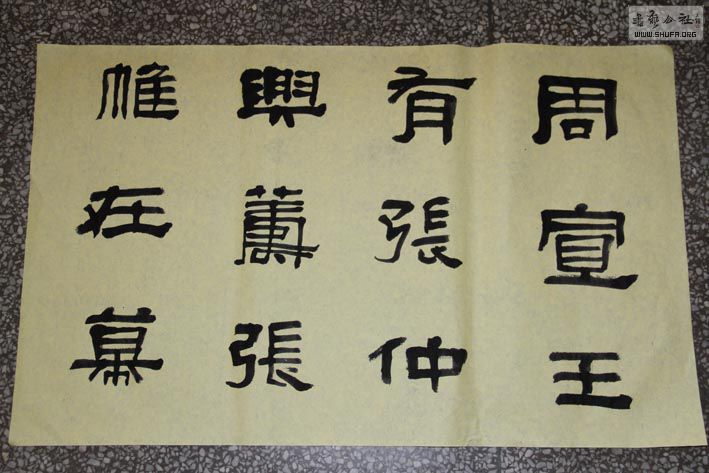 周宣王
有張仲
興籌張
帷在幕
書藝公社
WWW.SHUFA.ORG